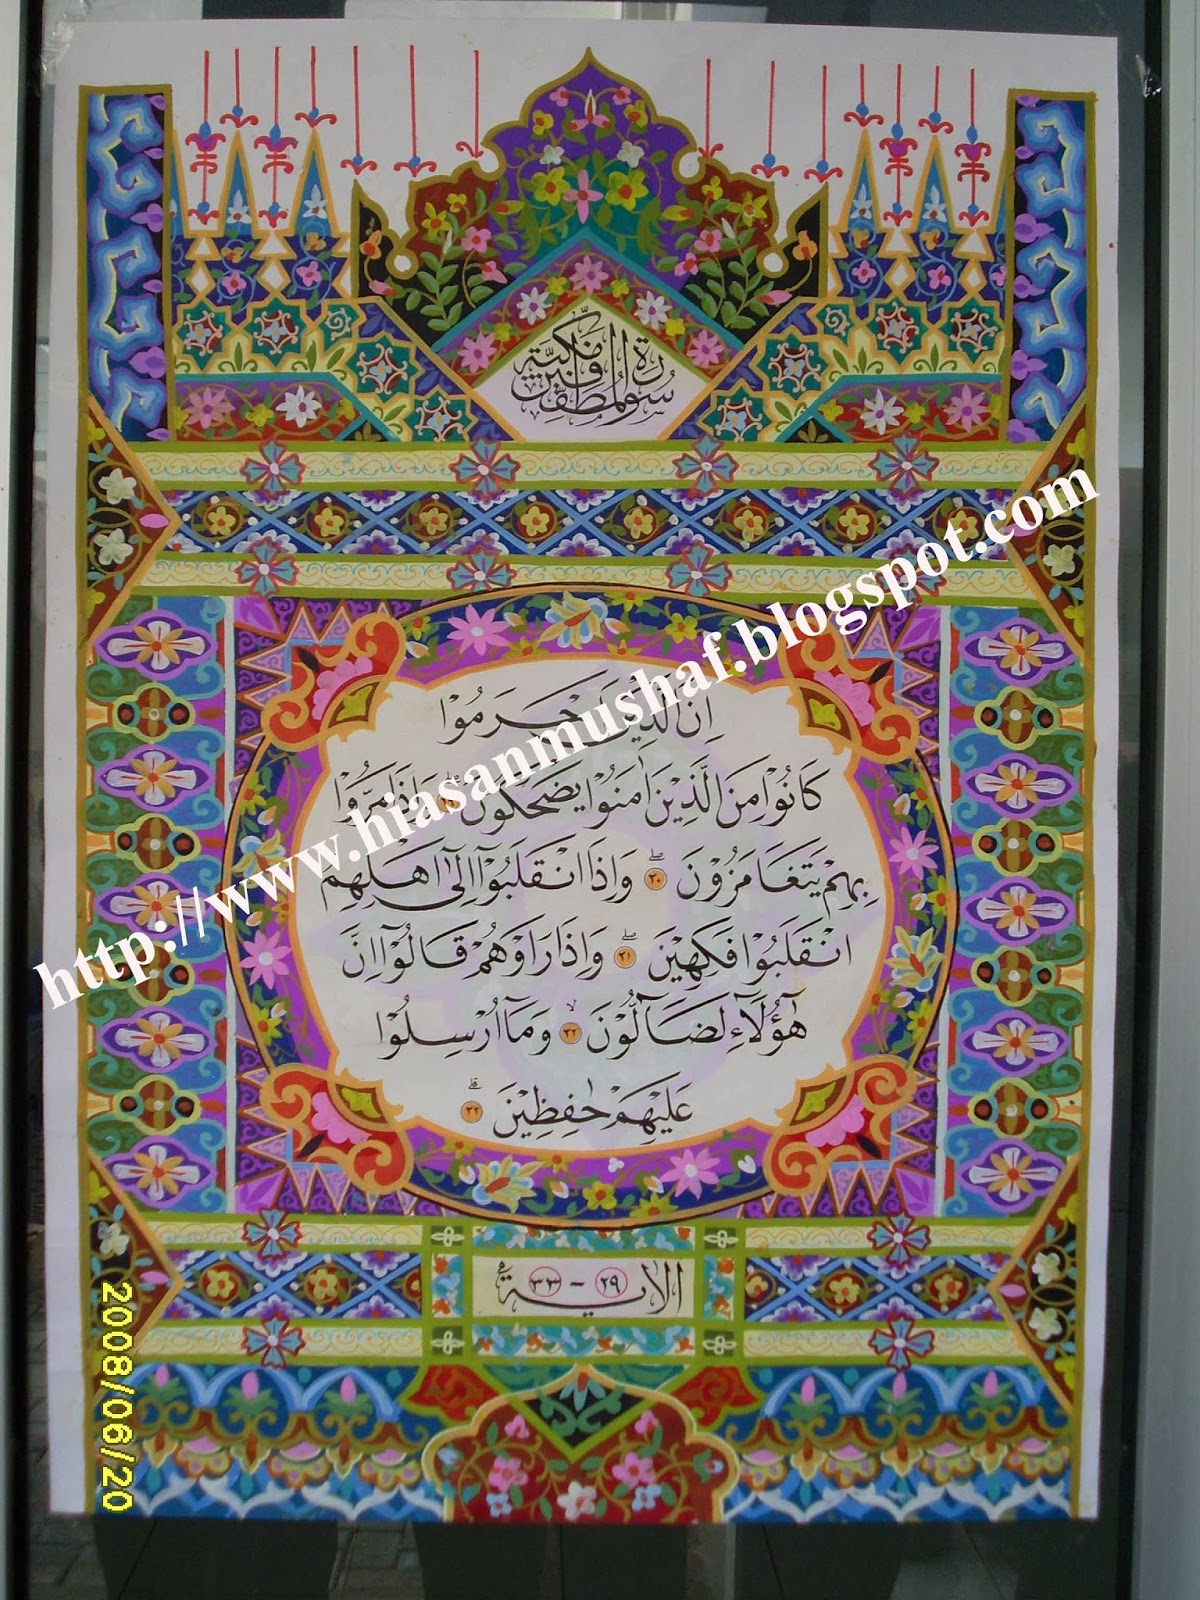 سُورَةُ الْمُطَفِّفِيْنَ مَكِّيَّة
اِنَّ الَّذِيْنَ اَجْرَمُوْا
كَانُوْا مِنَ الَّذِيْنَ اٰمَنُوْا يَضْحَكُوْنَ وَاِذَا مَرُّوْا
بِهِمْ يَتَغَامَزُوْنَ ۖ ٣٠ وَاِذَا انْقَلَبُوْٓا اِلٰٓى اَهْلِهِمُ
انْقَلَبُوْا فَكِهِيْنَ ۖ ٣١ وَاِذَا رَاَوْهُمْ قَالُوْٓا اِنَّ
هٰٓؤُلَآءِ لَضَآلُّوْنَ ۙ ٣٢ وَمَآ اُرْسِلُوْا
عَلَيْهِمْ حٰفِظِيْنَ ۗ
الاية ٢٩ - ٣٣
http://www.hiasanmushaf.blogspot.com
2008/06/20